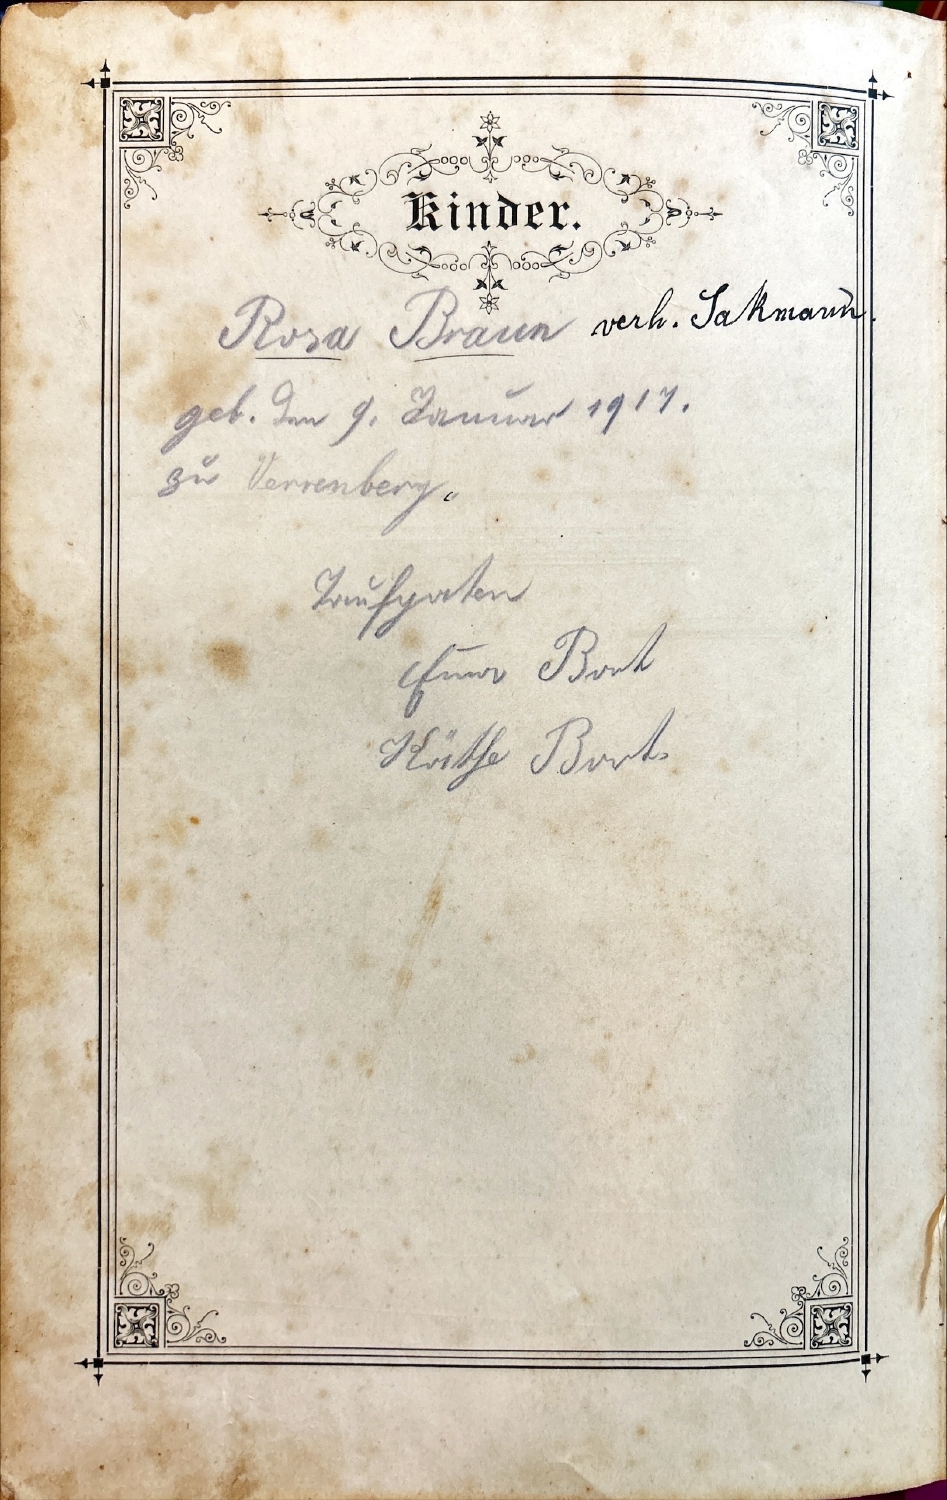 Kinder.
Rosa Braun verh. Sakmann.
geb. den 9. Januar 1917.
zu Verrenberg.
Taufpaten
Bort
Käthe Bort.